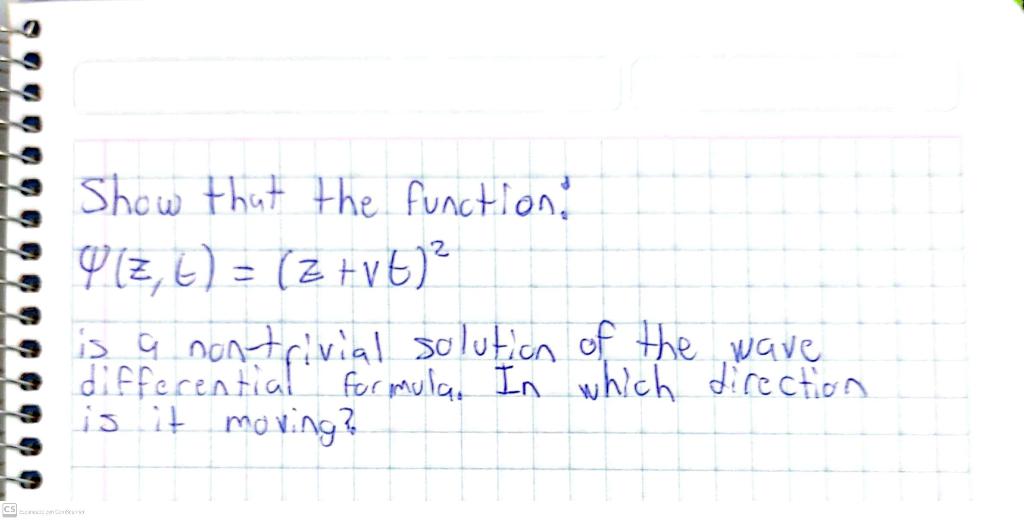 Show that the function:
Ψ(z,t) = (z + vt)²
is a non-trivial solution of the wave
differential formula. In which direction
is it moving?
CS